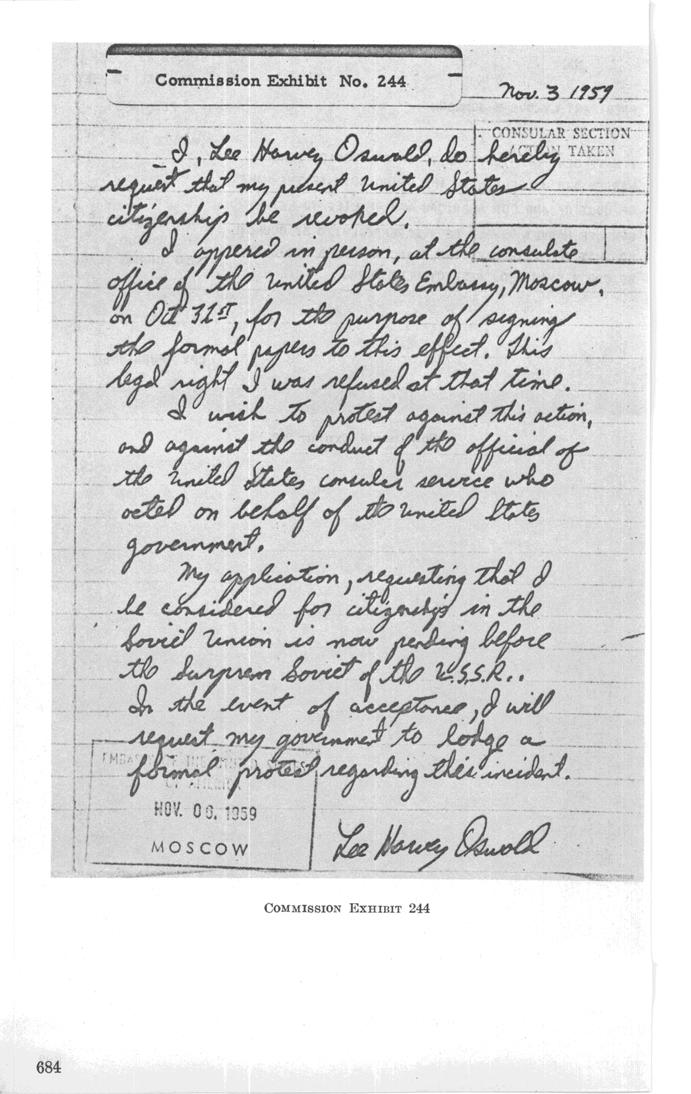 Commission Exhibit No. 244
Nov. 3 1959
CONSULAR SECTION
ACTION TAKEN
I, Lee Harvey Oswald, do hereby
request that my present United States
citizenship be revoked.
I appered in person, at the consulate
office of the United States Embassy, Moscow,
on Oct 31st, for the purpose of signing
the formal papers to this effect. This
legal right I was refused at that time.
I wish to protest against this action,
and against the conduct of the official of
the United States consular service who
acted on behalf of the United States
government.
My application, requesting that I
be considered for citizenship in the
Soviet Union is now pending before
the Surprem Soviet of the U.S.S.R..
In the event of acceptance, I will
request my government to lodge a
formal protest regarding this incident.
EMBASSY OF THE UNITED STATES
OF AMERICA
NOV. 06. 1959
MOSCOW
Lee Harvey Oswald
COMMISSION EXHIBIT 244
684